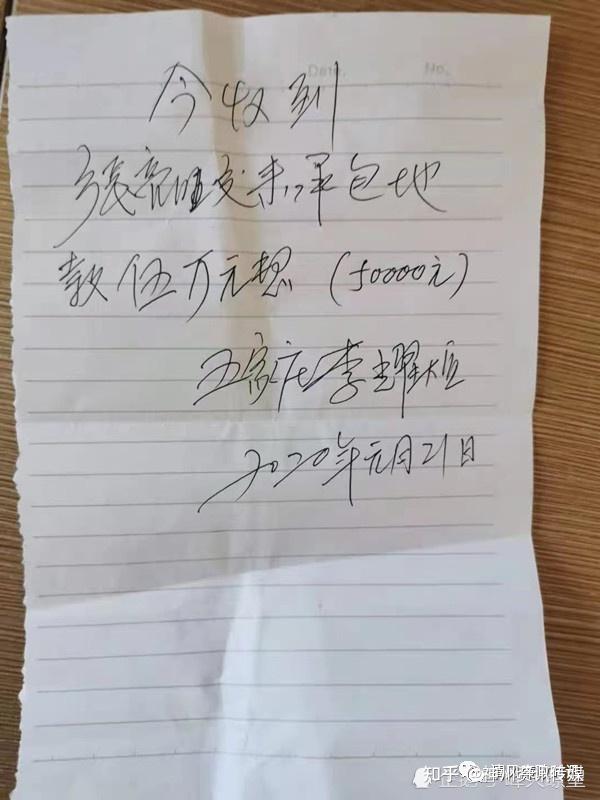 Date.
No.
今收到
张亮旺交来承包地
款伍万元整（50000元）
五家庄李耀
2020年元月21日
知乎